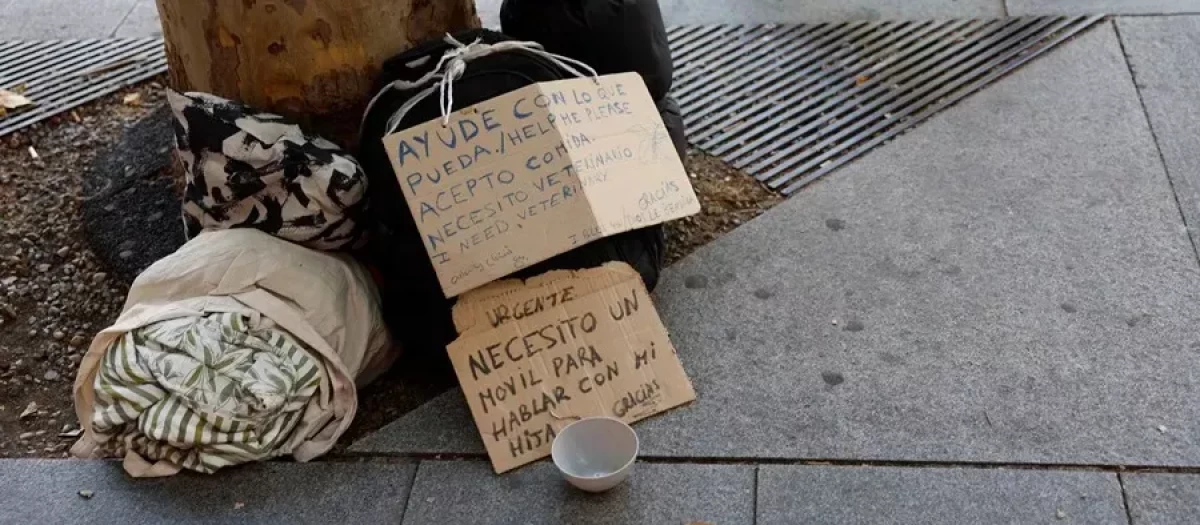 AYUDE CON LO QUE
PUEDA./HELP ME PLEASE
ACEPTO COMIDA.
NECESITO VETERINARIO
I NEED VETERINARY
GRACIAS
URGENTE
NECESITO UN
MOVIL PARA
HABLAR CON MI
HIJA
GRACIAS